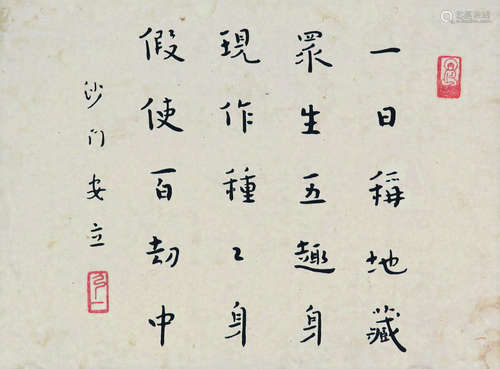 一日稱地藏
眾生五趣身
現作種〻身
假使百劫中
沙门安立